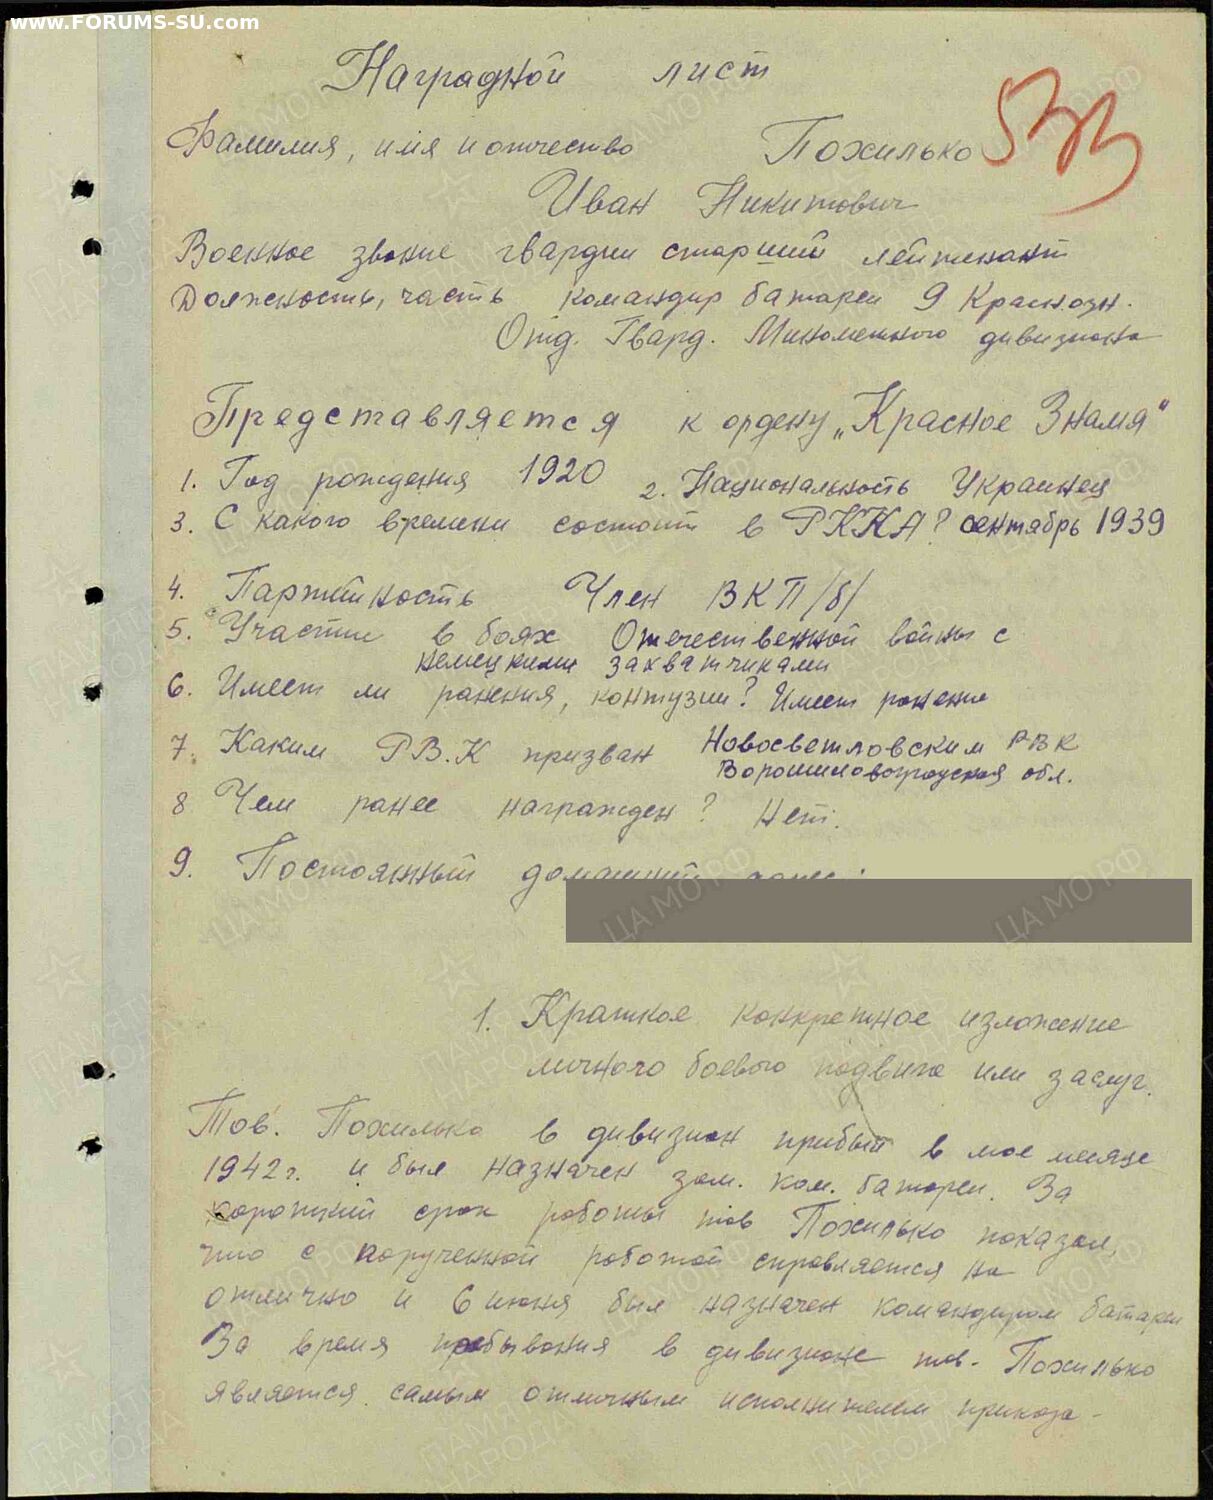 www.FORUMS-SU.com
Наградной лист
533
Фамилия, имя и отчество Похилько
Иван Никитович
Военное звание гвардии старший лейтенант
Должность, часть командир батареи 9 Краснозн.
Отд. Гвард. Минометного дивизиона
Представляется к ордену „Красное Знамя"
1. Год рождения 1920 2. Национальность Украинец
3. С какого времени состоит в РККА? сентябрь 1939
4. Партийность Член ВКП/б/
5. Участие в боях Отечественной войны с
немецкими захватчиками
6. Имеет ли ранения, контузии? Имеет ранение
7. Каким РВ.К призван Новосветловским РВК
Ворошиловоградская обл.
8 Чем ранее награжден? Нет.
9. Постоянный домашний адрес:
1. Краткое конкретное изложение
личного боевого подвига или заслуг.
Тов. Похилько в дивизион прибыл в мае месяце
1942 г. и был назначен зам. ком. батареи. За
короткий срок работы тов Похилько показал,
что с порученной работой справляется на
отлично и 6 июня был назначен командиром батареи
За время пребывания в дивизионе тов. Похилько
является самым отличным исполнителем приказа-
ЦАМО РФ
ПАМЯТЬ НАРОДА